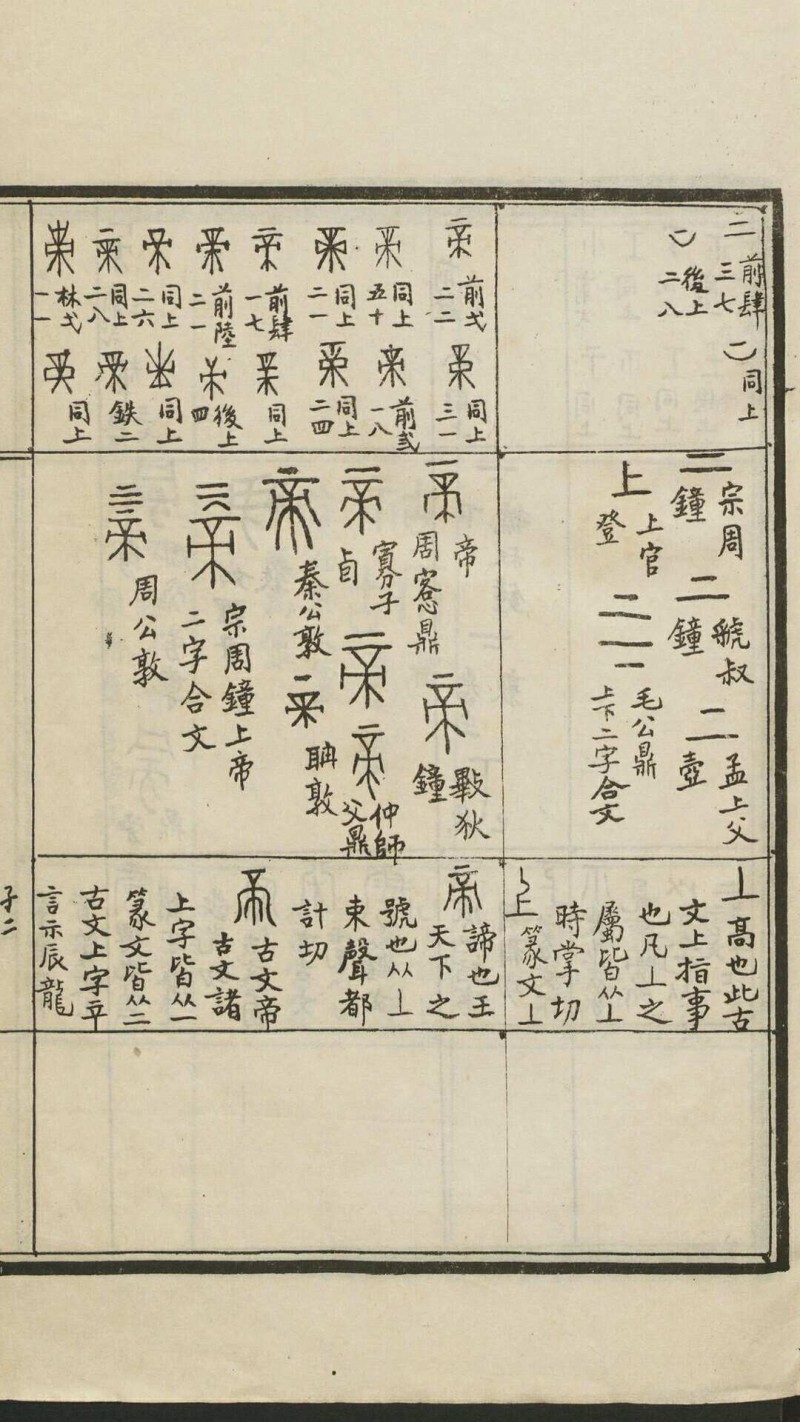 二 前肆
三七
後上
二八
同上
二 宗周
鐘
二 虢叔
鐘
二 孟上父
壺
上 上官
登
毛公鼎
上下二字合文
丄高也此古
文上指事
也凡丄之
屬皆从丄
時掌切
篆文丄
帝 前弍
二二
同上
三一
帝 同上
五十
帝 前弍
一八
同上
二一
同上
二四
帝 前肆
一七
同上
前陸
二一
後上
四
同上
二六
同上
同上
二八
鉄二
林弌
一一
同上
帝 帝
周窓鼎
帝 㪤狄
鐘
帝 寡子
卣
帝
帝 仲師
父鼎
帝 秦公敦
耼敦
宗周鐘上帝
二字合文
周公敦
帝諦也王
天下之
號也从丄
朿聲都
計切
古文帝
古文諸
上字皆从一
篆文皆从二
古文上字䇂
言示辰龍